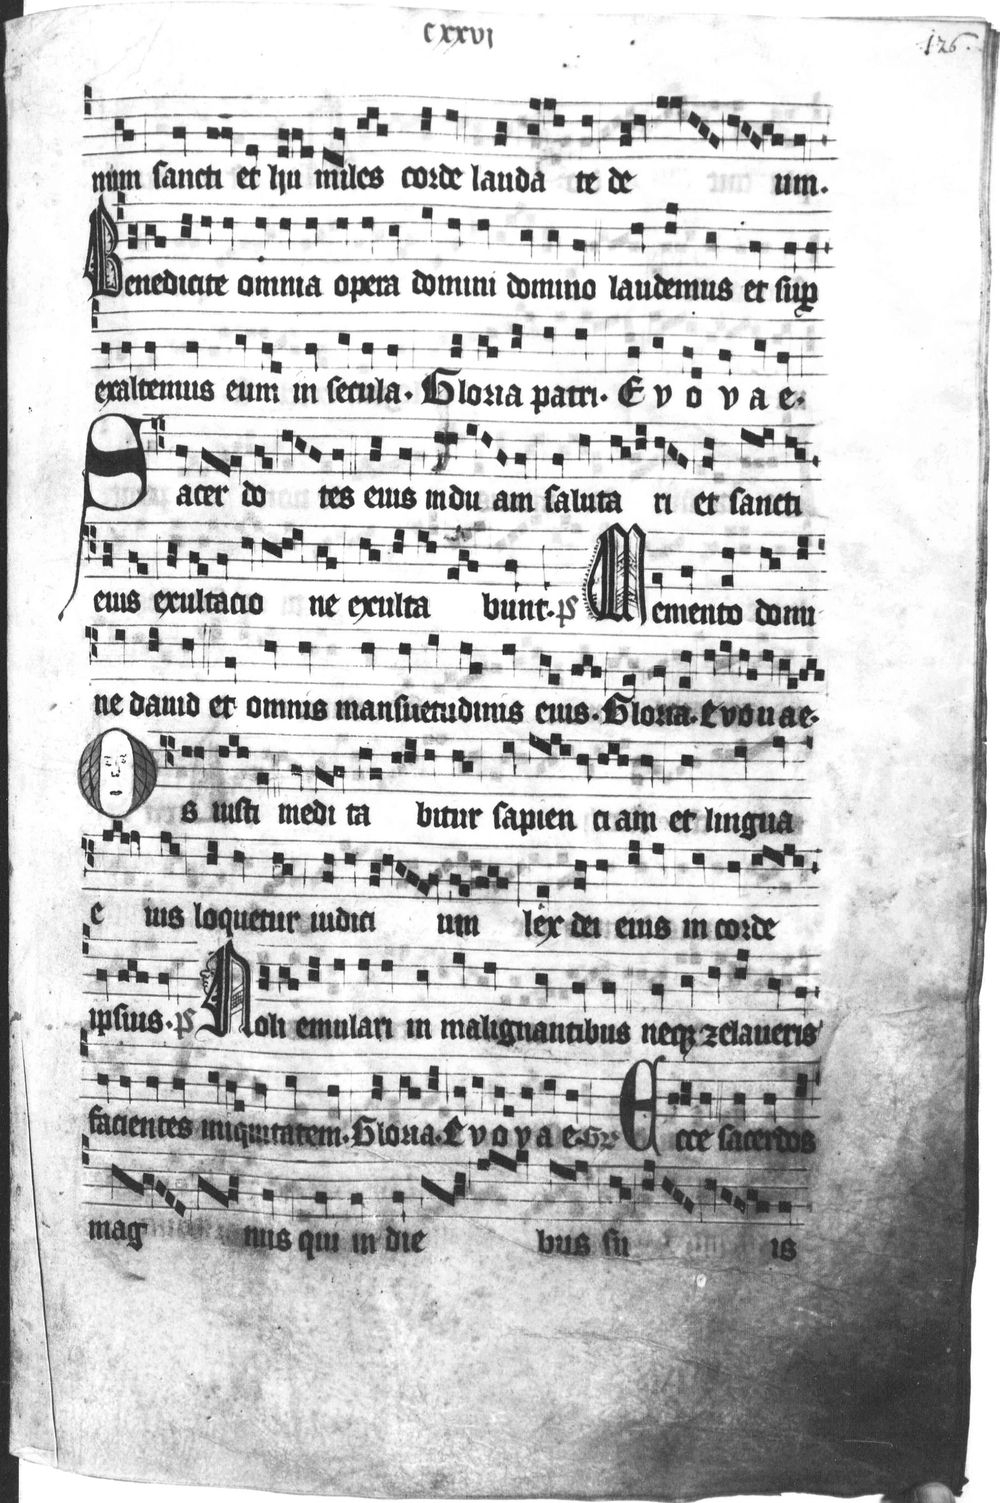 cxxvi
126.
num sancti et hu miles corde lauda te de um.
Benedicite omnia opera domini domino laudemus et sup
exaltemus eum in secula. Gloria patri. E v o v a e.
Sacer do tes eius indu am saluta ri et sancti
eius exultacio ne exulta bunt. ps Memento domi
ne dauid et omnis mansuetudinis eius. Gloria. Evouae.
Os iusti medi ta bitur sapien ciam et lingua
e ius loquetur iudici um lex dei eius in corde
ipsius. ps Noli emulari in malignantibus neq zelaueris
facientes iniquitatem. Gloria. E v o v a e. Gr Ecce sacerdos
mag nus qui in die bus su is